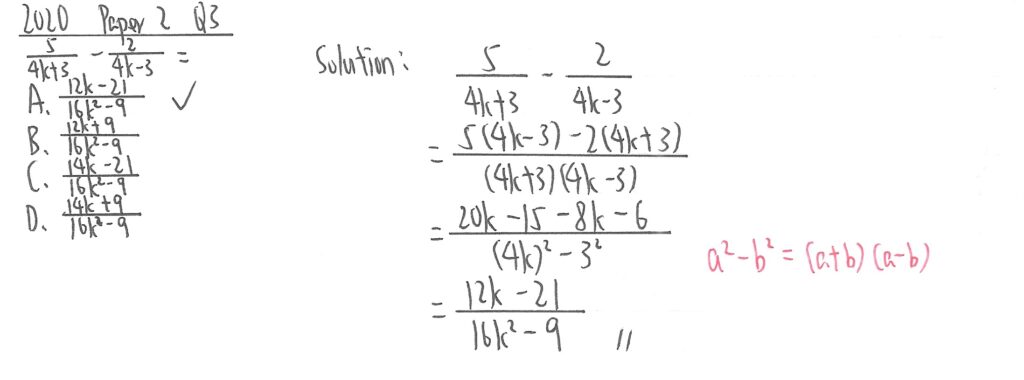 2020 Paper 2 Q3
5/(4k+3) - 2/(4k-3) =
A. (12k-21)/(16k²-9) ✓
B. (12k+9)/(16k²-9)
C. (14k-21)/(16k²-9)
D. (14k+9)/(16k²-9)
Solution: 5/(4k+3) - 2/(4k-3)
= (5(4k-3)-2(4k+3))/((4k+3)(4k-3))
= (20k-15-8k-6)/((4k)²-3²)
a²-b²=(a+b)(a-b)
= (12k-21)/(16k²-9) //